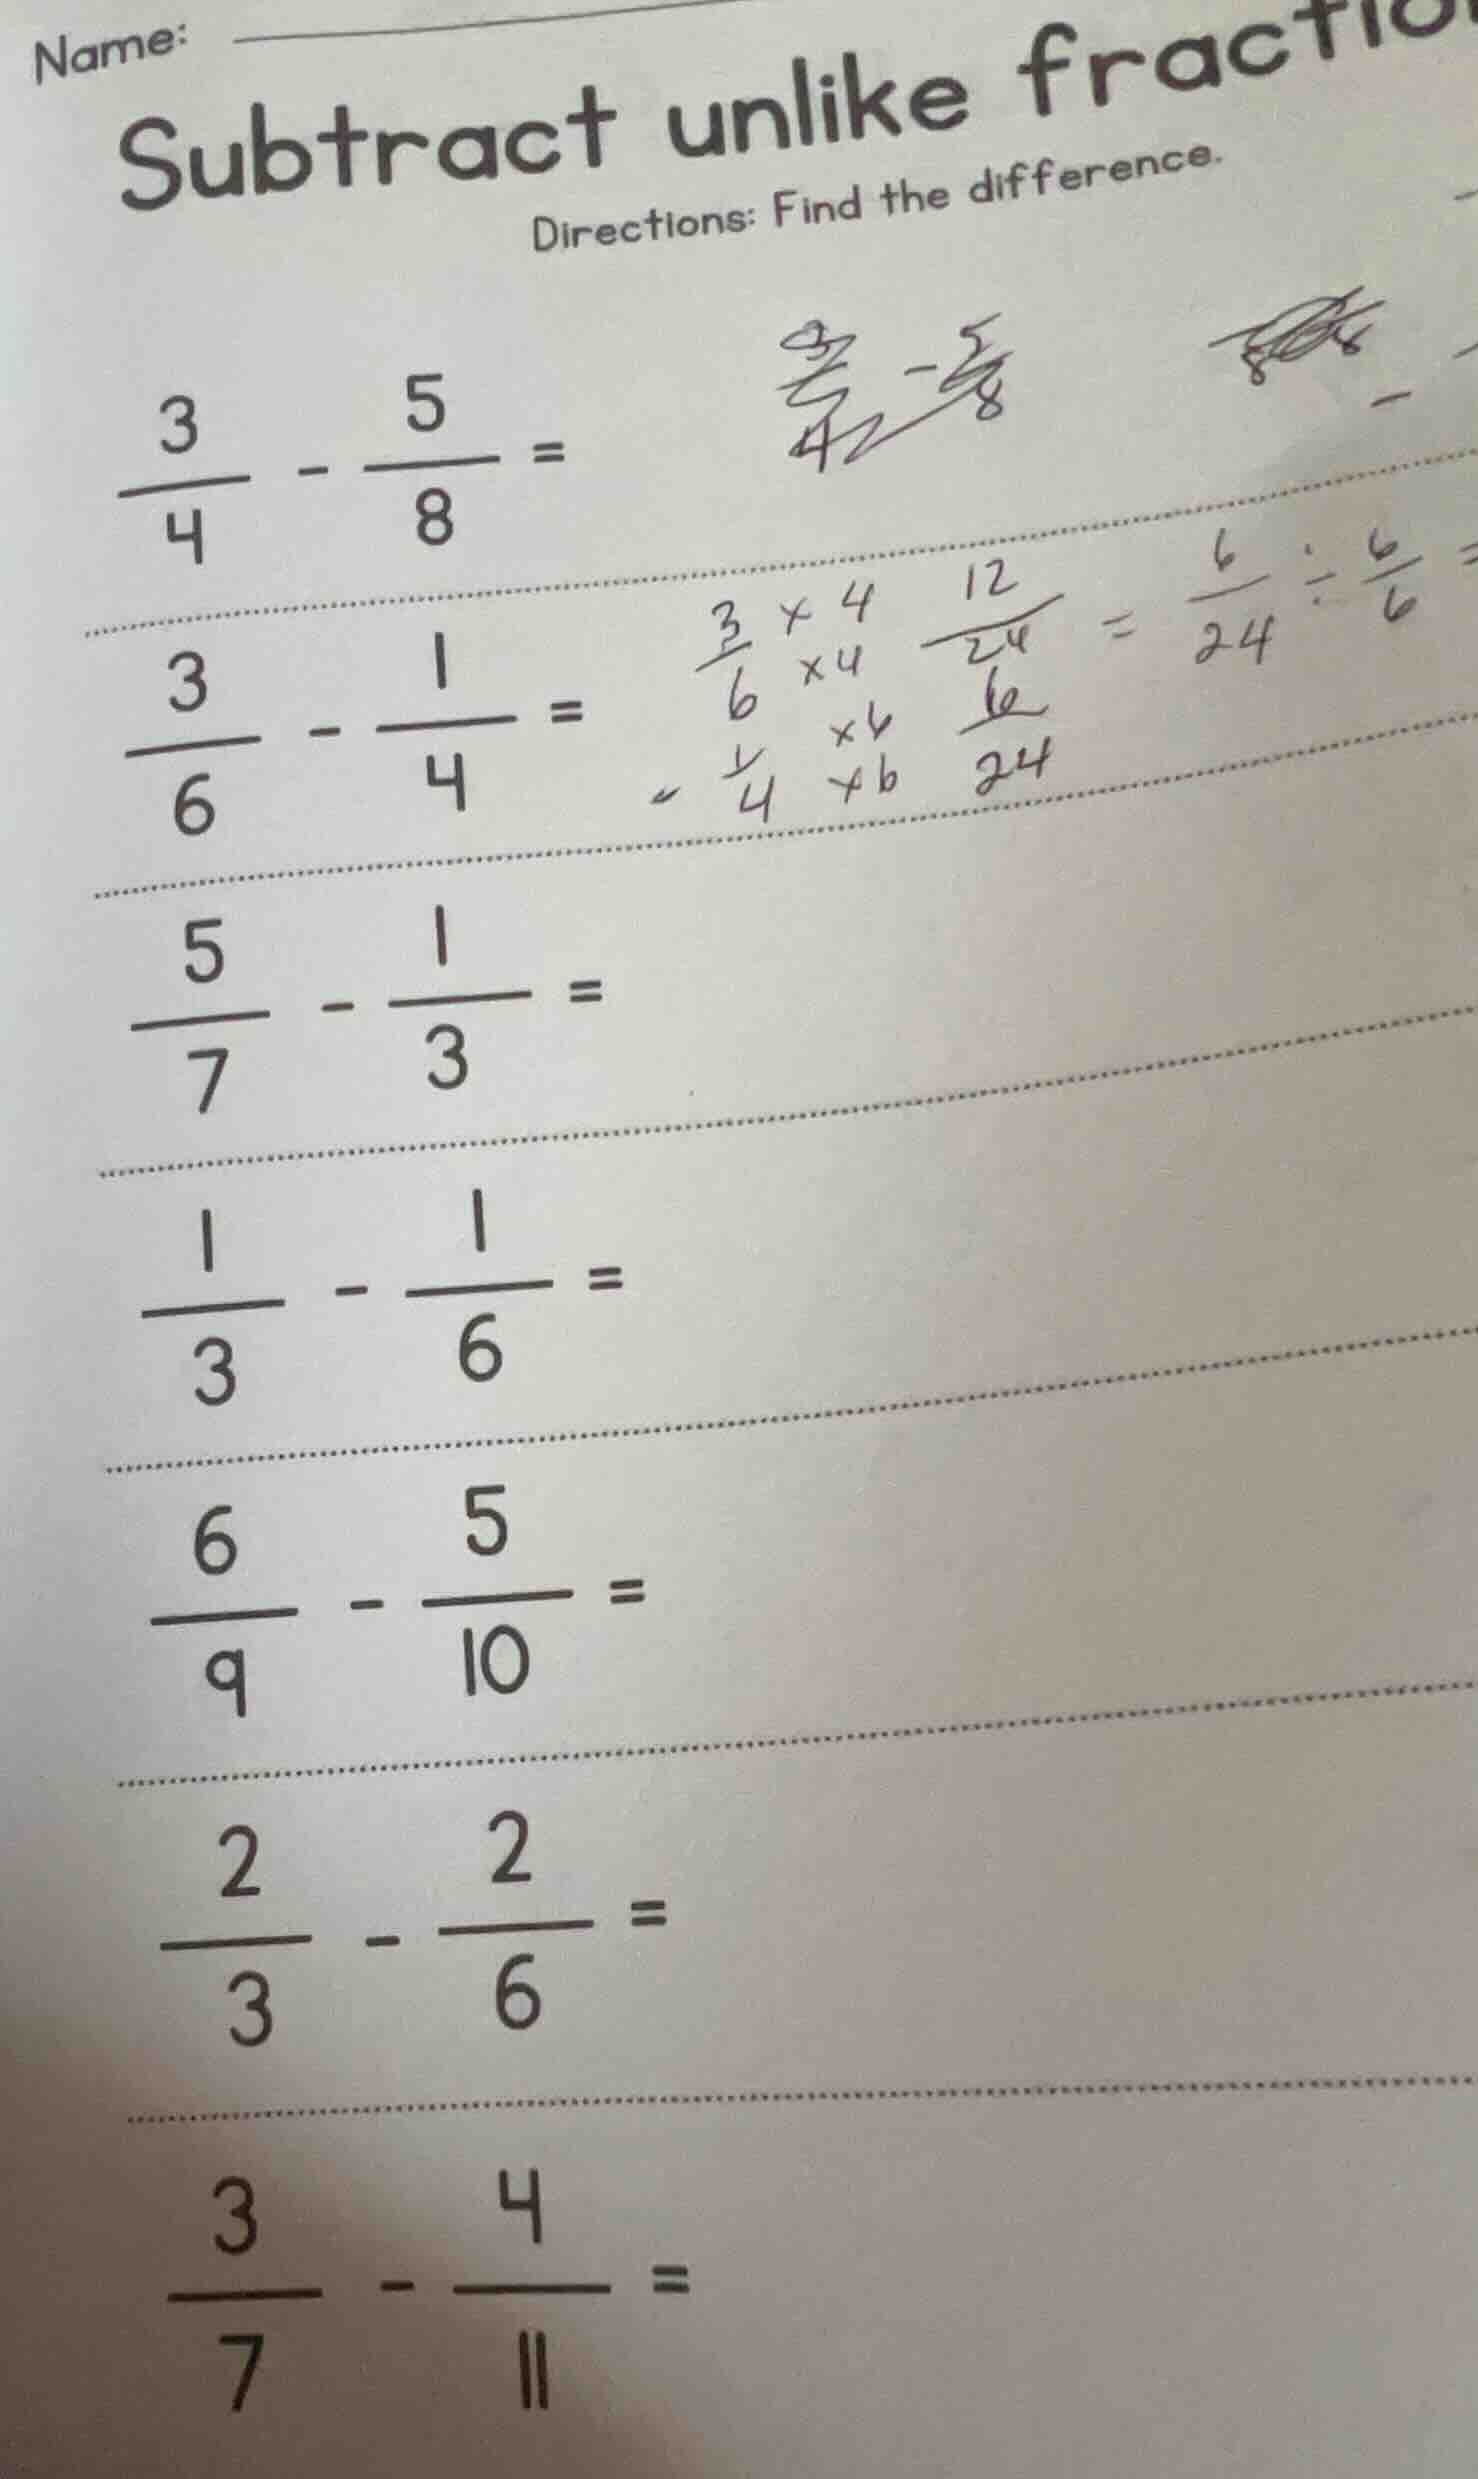 Name:
Subtract unlike fractio
Directions: Find the difference.
3/4 - 5/8 =
3/6 - 1/4 = 3/6 x 4 x 4 12/24 = 6/24 ÷ 6/6 =
- 1/4 x 6 x 6 6/24
5/7 - 1/3 =
1/3 - 1/6 =
6/9 - 5/10 =
2/3 - 2/6 =
3/7 - 4/11 =